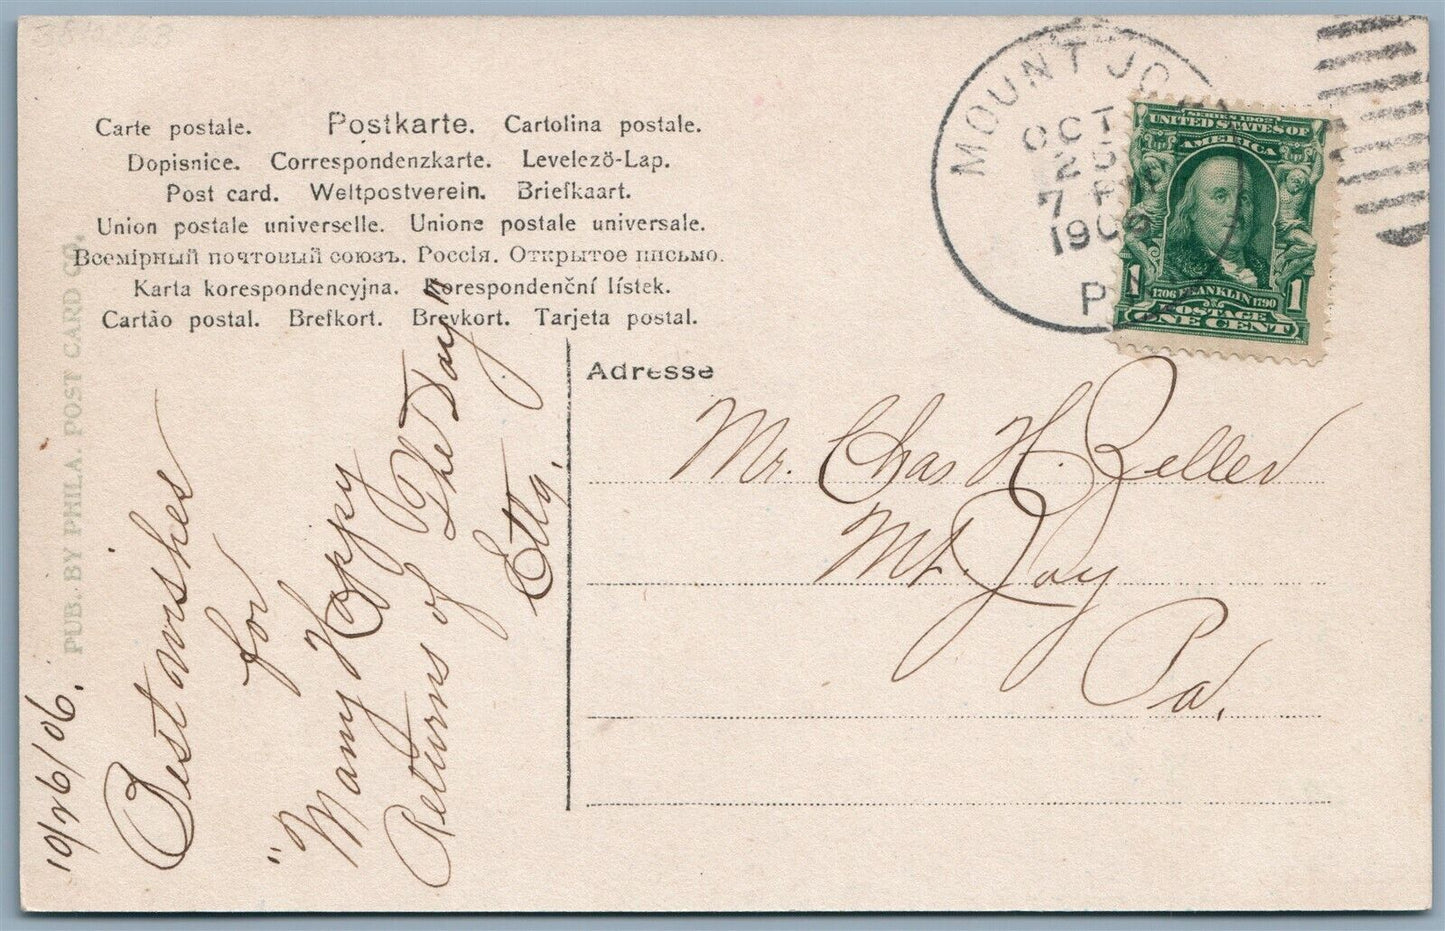 Carte postale. Postkarte. Cartolina postale.
Dopisnice. Correspondenzkarte. Levelező-Lap.
Post card. Weltpostverein. Briefkaart.
Union postale universelle. Unione postale universale.
Всемірный почтовый союзъ. Россія. Открытое письмо.
Karta korespondencyjna. Korespondenční lístek.
Cartão postal. Brefkort. Brevkort. Tarjeta postal.
PUB. BY PHILA. POST CARD CO.
MOUNT JOY
OCT
7 P
1906
PA
SERIES 1902
UNITED STATES OF
AMERICA
1706 FRANKLIN 1790
POSTAGE
1 ONE CENT 1
Adresse
Mr. Chas H. Zeller
Mt. Joy
Pa.
10/26/06.
Best wishes
for
"Many Happy
Returns of The Day"
Etta.